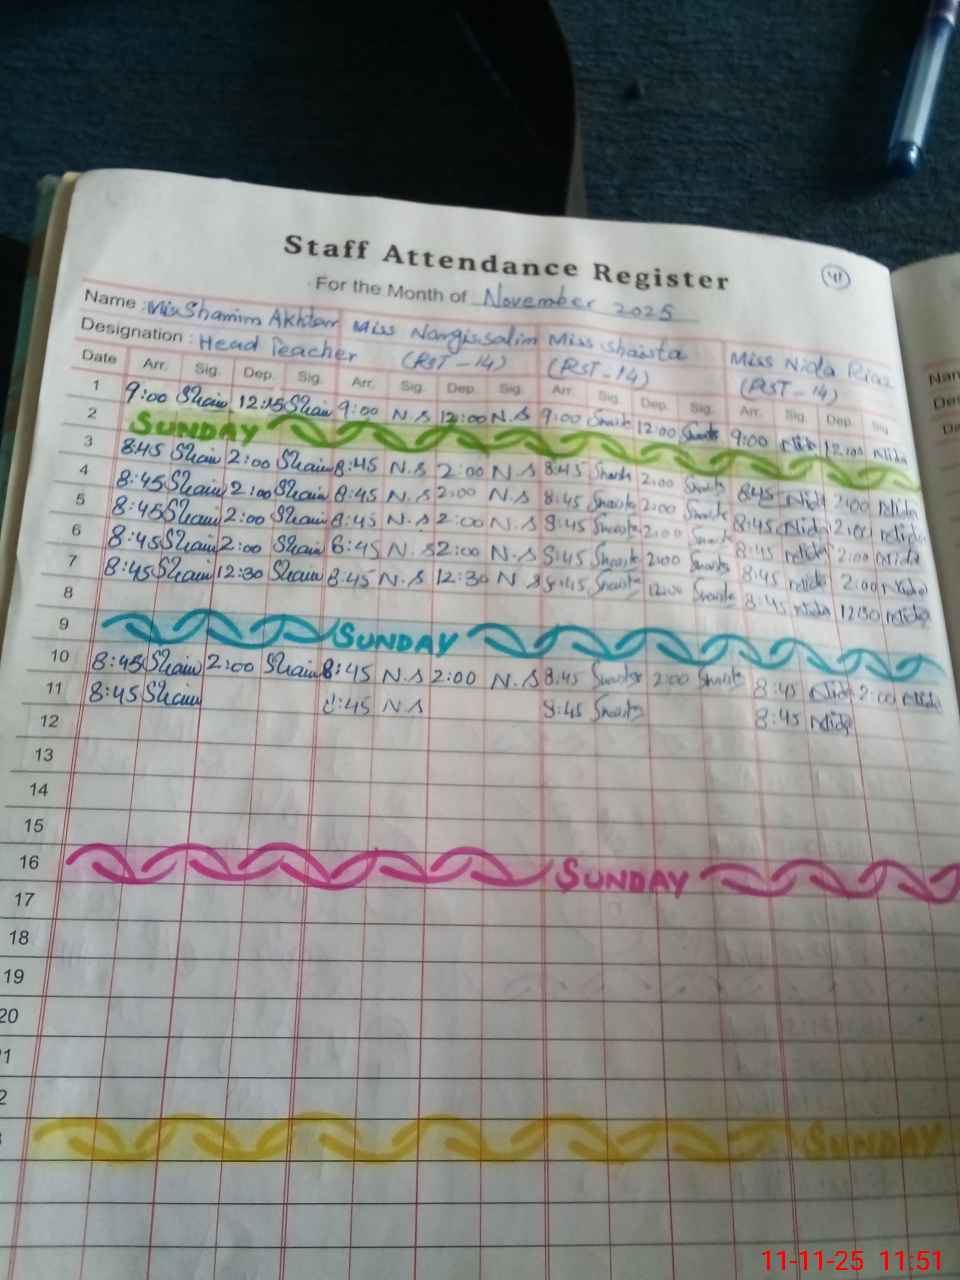 Staff Attendance Register
41
For the Month of November 2025
Name : Miss Shamim Akhtar Miss Nargis salim Miss shaista Miss Nida Riaz
Designation : Head Teacher (PST - 14) (PST - 14) (PST - 14)
Date Arr. Sig. Dep. Sig. Arr. Sig. Dep. Sig. Arr. Sig. Dep. Sig. Arr. Sig. Dep. Sig.
1 9:00 12:15 9:00 N.S 12:00 N.S 9:00 12:00 9:00 Nida 12:00 Nida
2 SUNDAY
3 8:45 2:00 8:45 N.S 2:00 N.S 8:45 2:00 8:45 Nida 2:00 Nida
4 8:45 2:00 8:45 N.S 2:00 N.S 8:45 2:00 8:45 Nida 2:00 Nida
5 8:45 2:00 8:45 N.S 2:00 N.S 8:45 2:00 8:45 Nida 2:00 Nida
6 8:45 2:00 8:45 N.S 2:00 N.S 8:45 2:00 8:45 Nida 2:00 Nida
7 8:45 12:30 8:45 N.S 12:30 N.S 8:45 8:45 Nida 12:30 Nida
8
9 SUNDAY
10 8:45 2:00 8:45 N.S 2:00 N.S 8:45 2:00 8:45 Nida 2:00 Nida
11 8:45 8:45 N.S 8:45 8:45 Nida
12
13
14
15
16 SUNDAY
17
18
19
20
1
2
SUNDAY
Nan
Des
Da
11-11-25 11:51